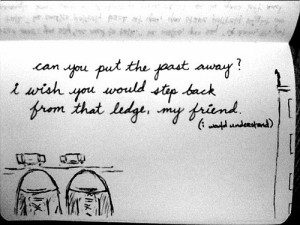 can you put the past away?
i wish you would step back
from that ledge, my friend.
(i would understand)